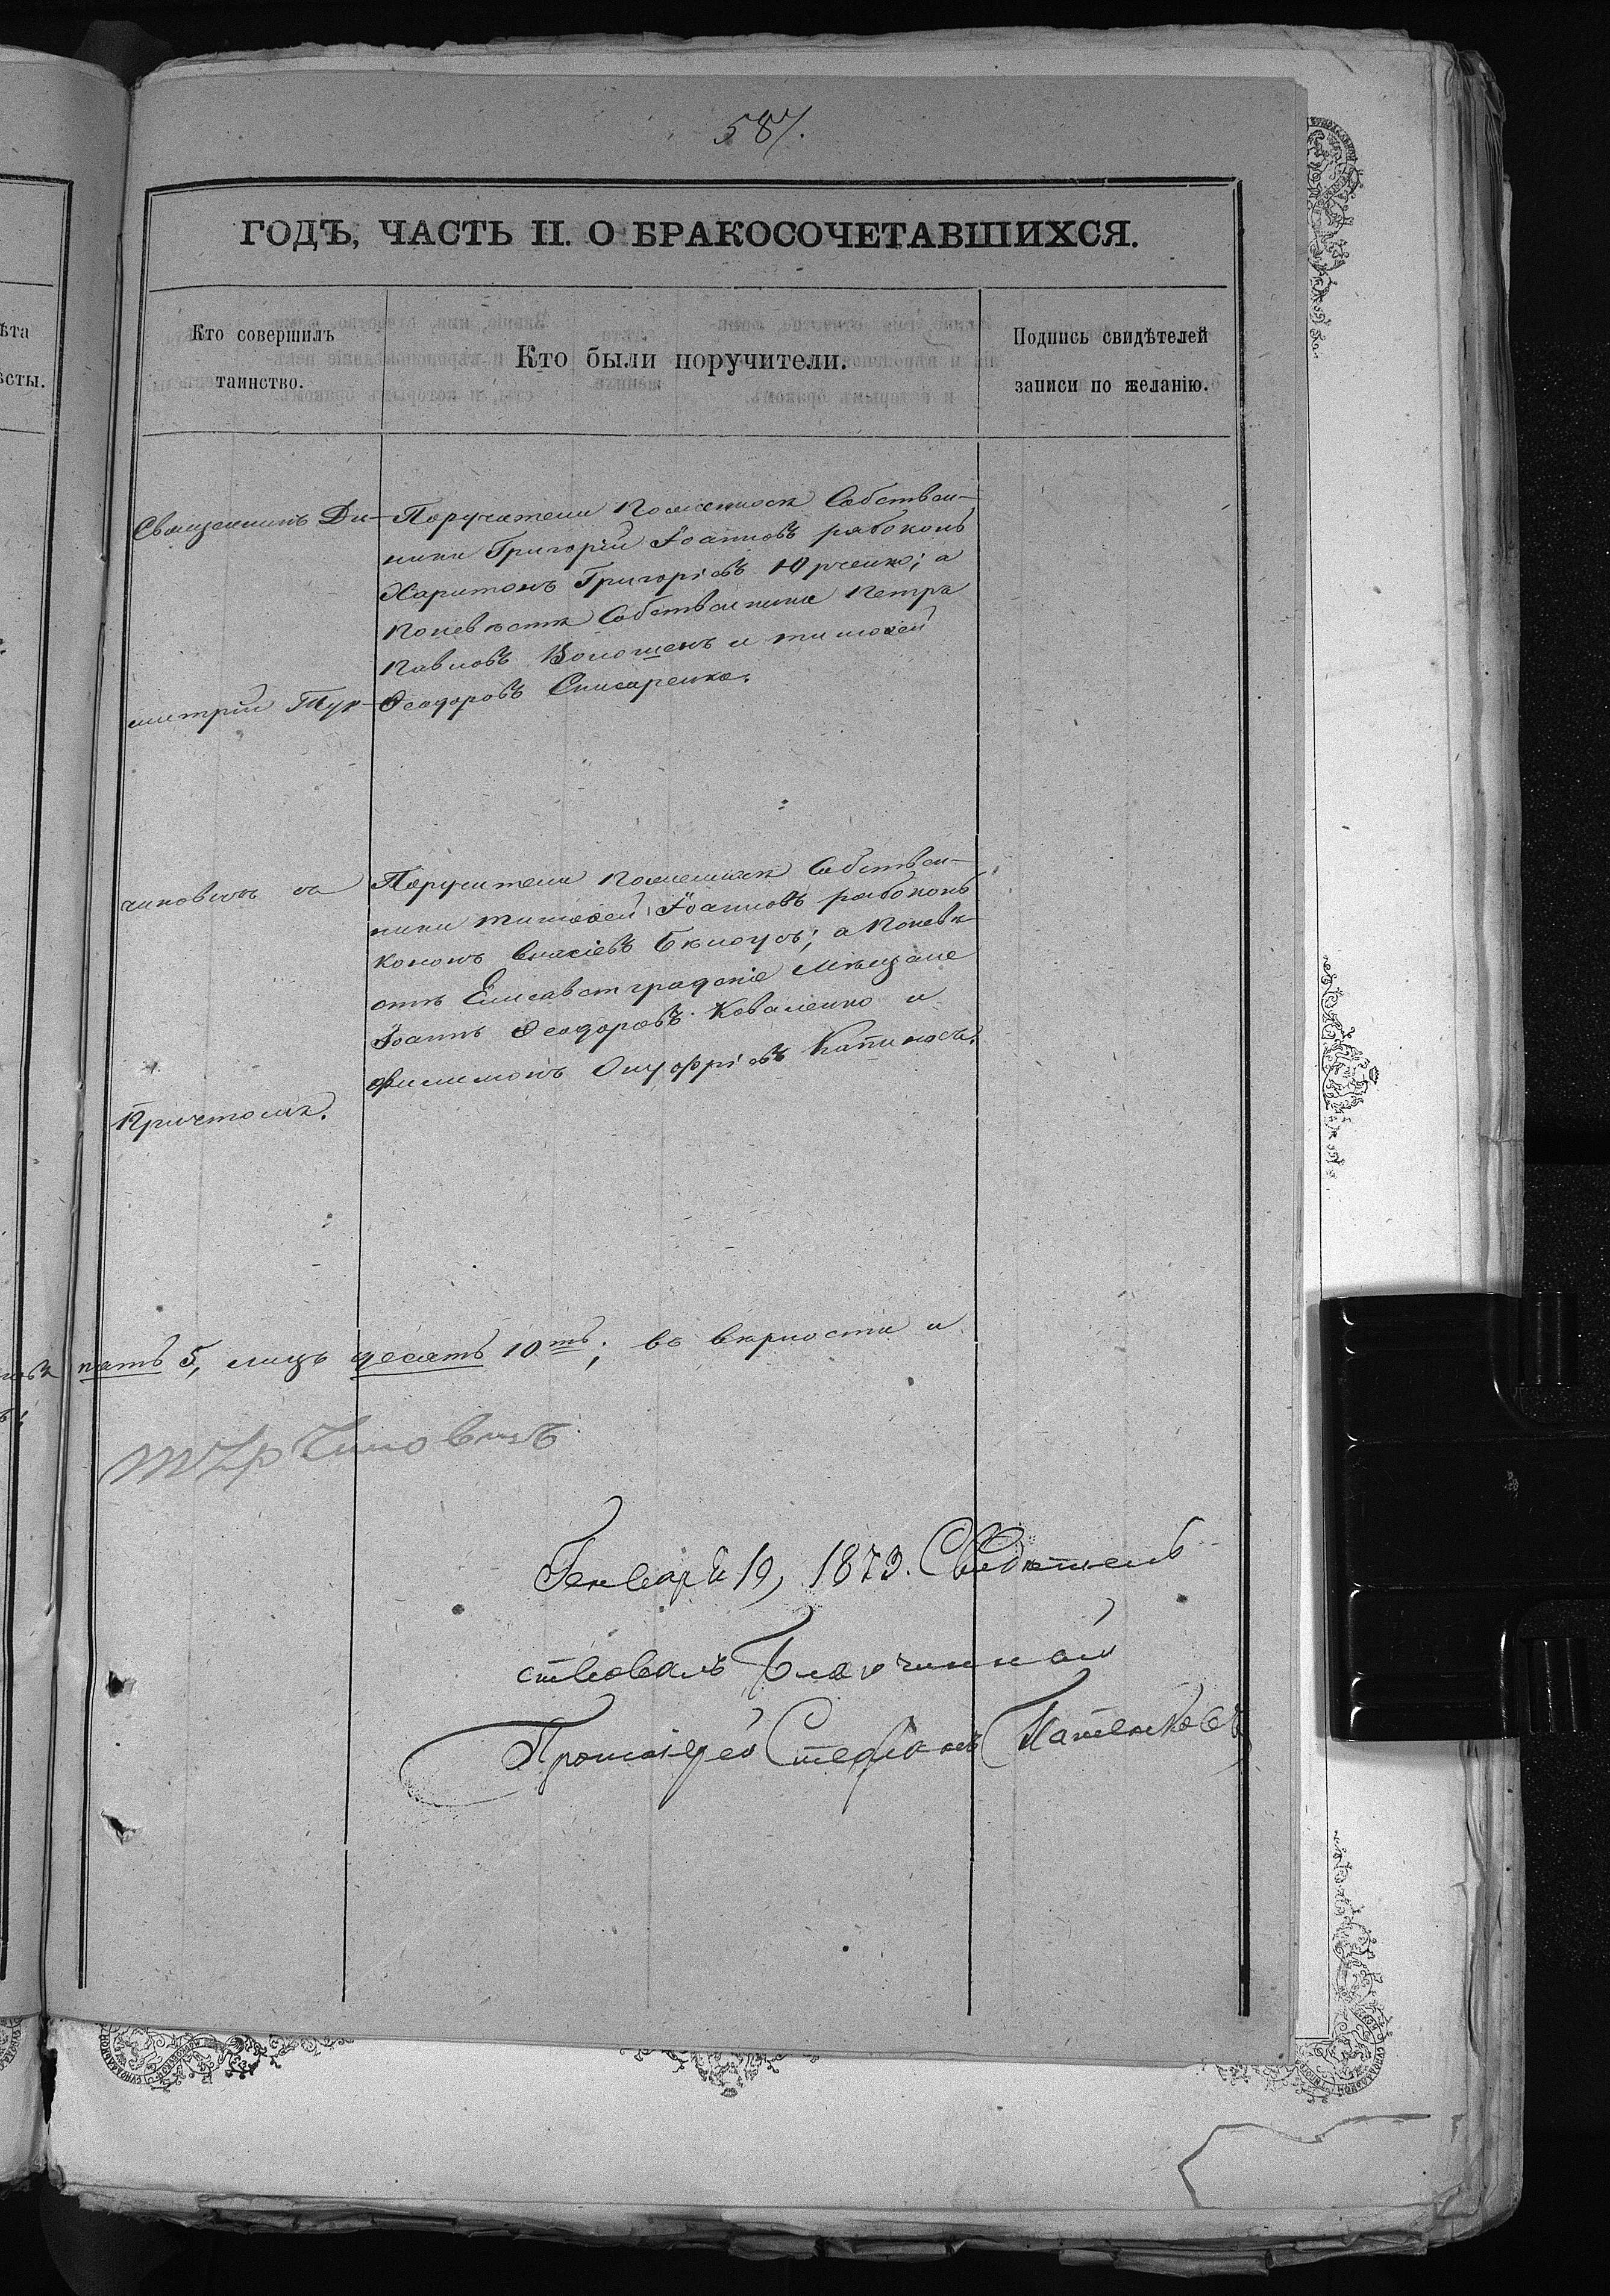 587.
ГОДЪ, ЧАСТЬ II. О БРАКОСОЧЕТАВШИХСЯ.
ѣта
ѣсты.
Кто совершилъ
таинство.
Кто были поручители.
Подпись свидѣтелей
записи по желанію.
Священникъ Ди-
митрій Тур-
чиновичъ съ
Причтомъ.
Поручители по женихѣ Собствен-
ники Григорій Іоанновъ рябоконь
Харитонъ Григоріевъ Юрченко; а
по невѣстѣ Собственники Петръ
Павловъ Волошенъ и тимоѳей
Ѳеодоровъ Слисаренко.
Поручители по женихѣ Собствен-
ники тимоѳей Іоанновъ рябоконь
кононъ Бѣлоусъ; а по невѣ-
стѣ Елисаветградскіе Мѣщане
Іоаннъ Ѳеодоровъ Коваленко и
филимонъ Онуфріевъ Капиносъ.
пять 5, лицъ десять 10ть; въ вѣрности и
турчиновичъ
Генваря 19, 1873. Свидѣтель
ствовалъ Благочинный
Протоіерей Стефанъ